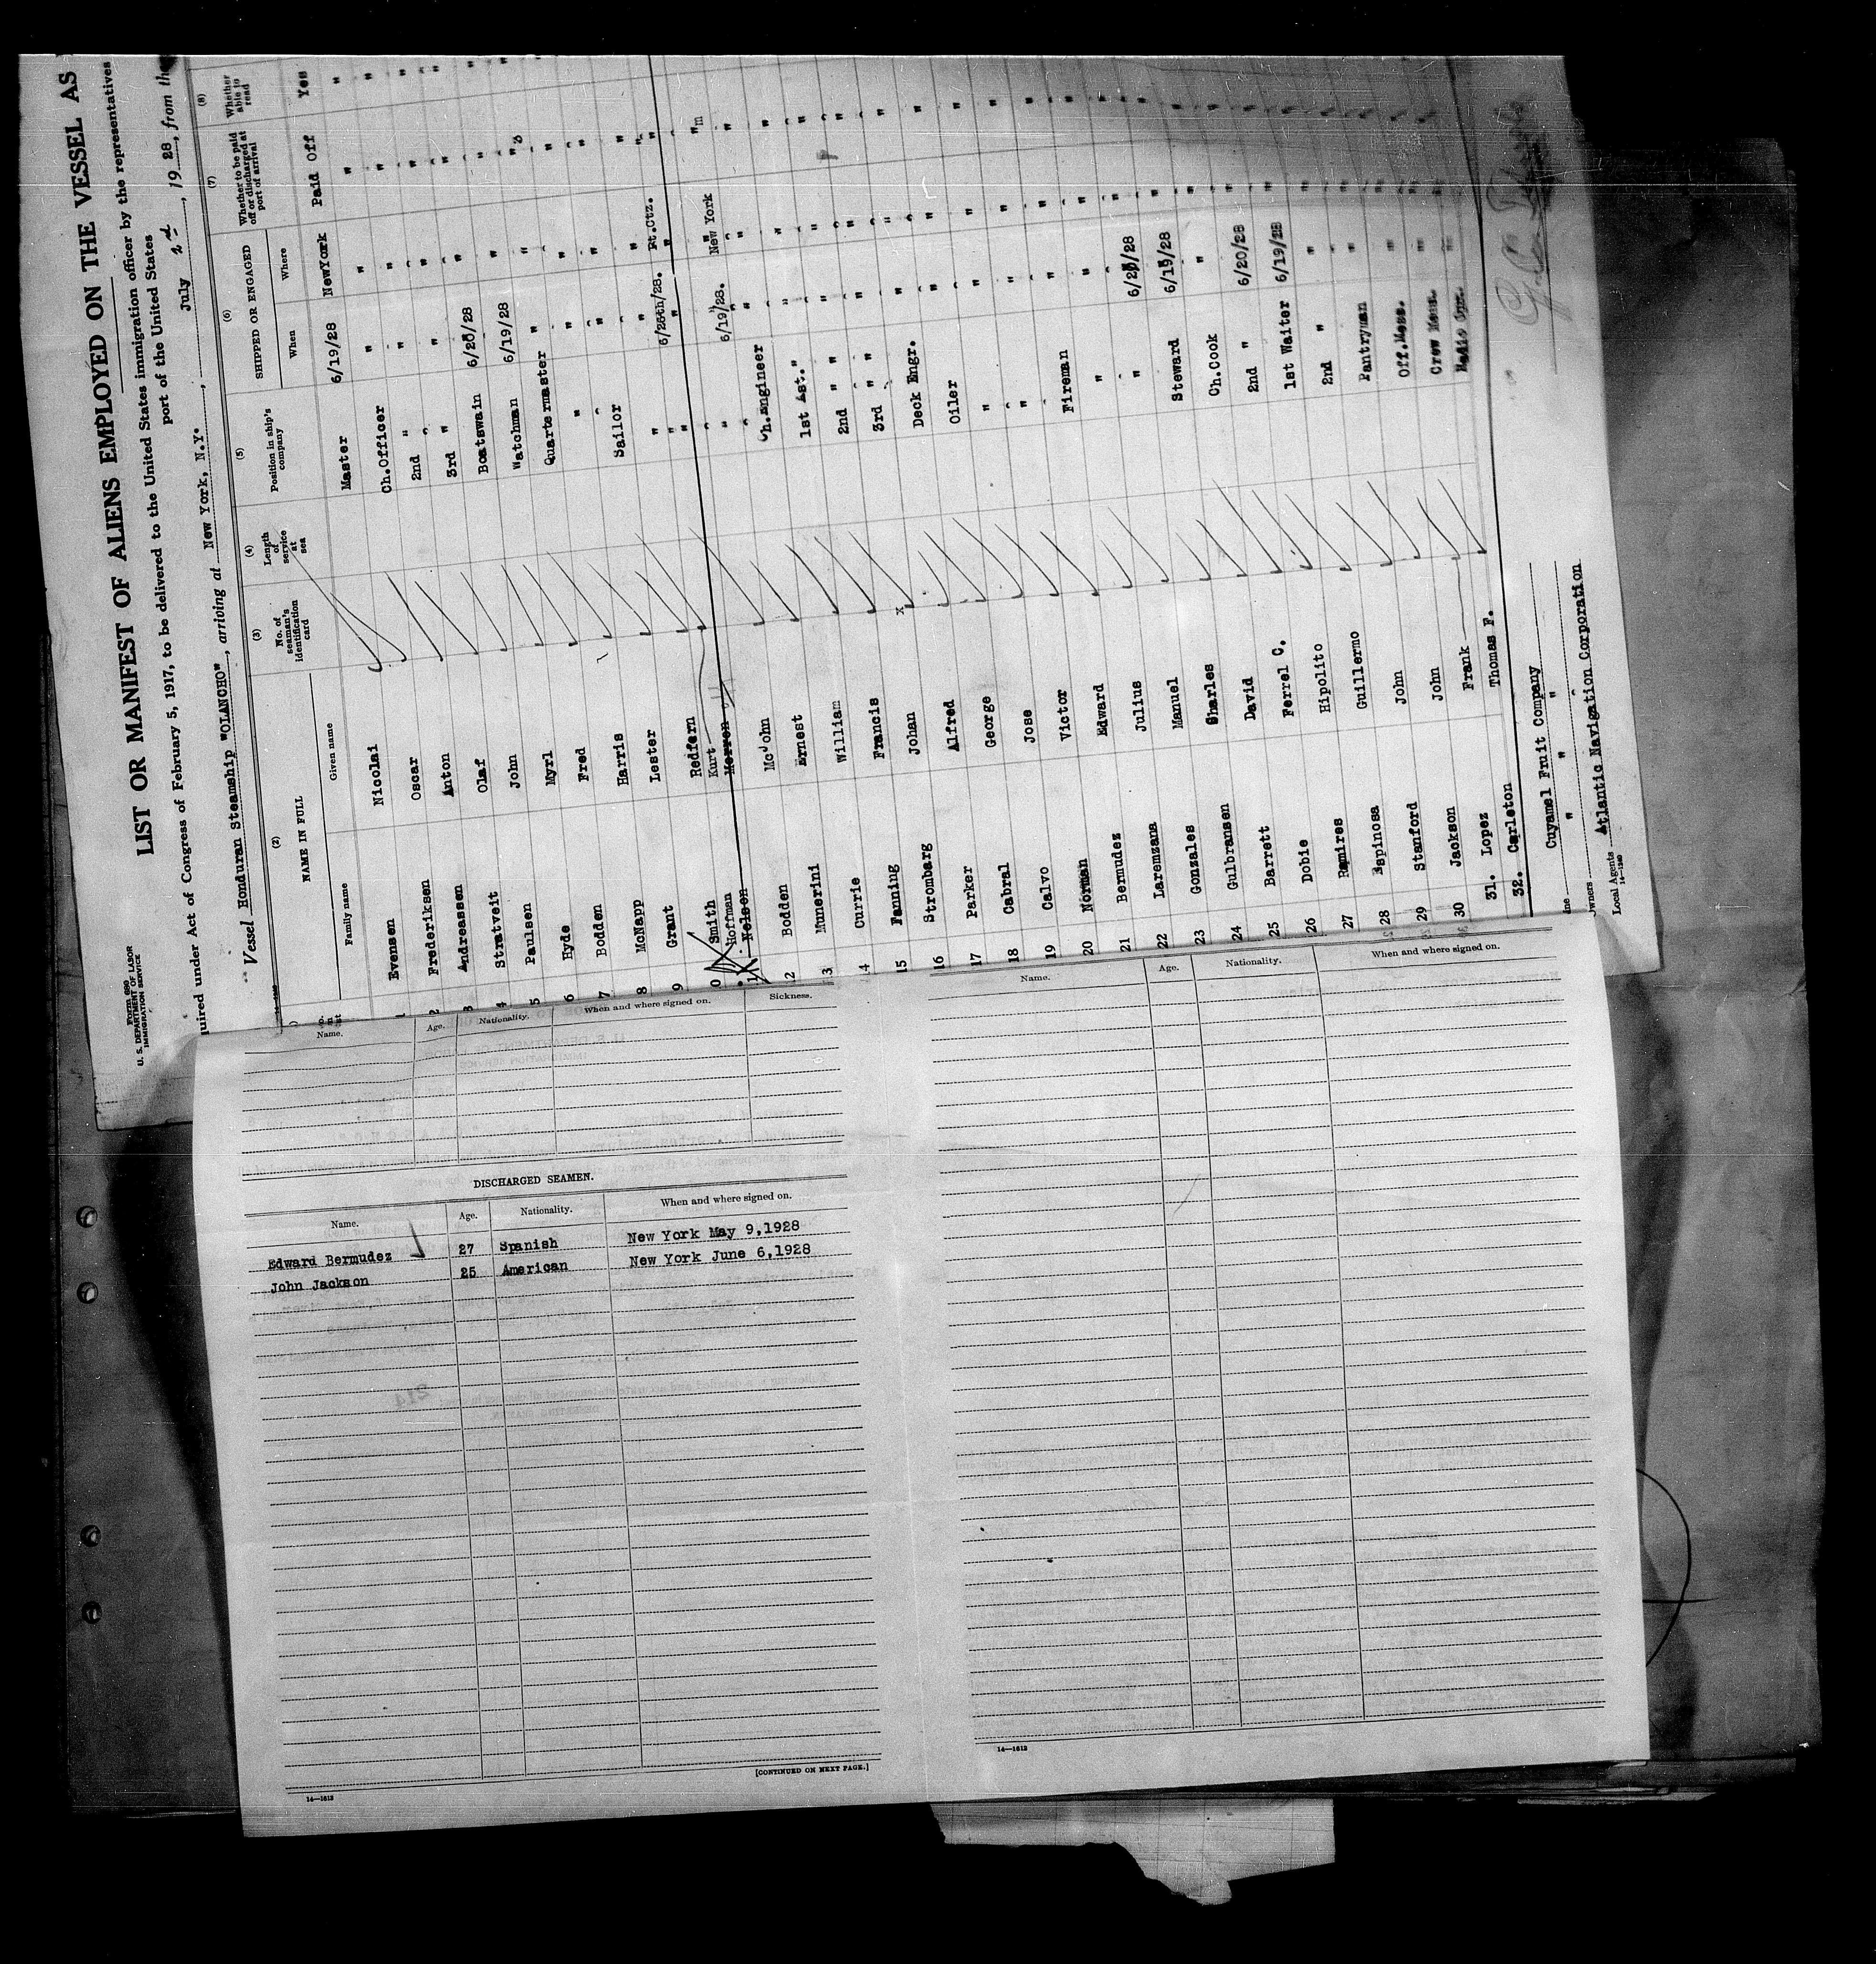 Form 680
U. S. DEPARTMENT OF LABOR
IMMIGRATION SERVICE
LIST OR MANIFEST OF ALIENS EMPLOYED ON THE VESSEL AS
quired under Act of Congress of February 5, 1917, to be delivered to the United States immigration officer by the representatives
port of the United States
Vessel Honduran Steamship "OLANCHO", arriving at New York, N.Y., July 2nd, 1928, from the
(2) (3) (4) (5) (6) (7) (8)
NAME IN FULL
Family name Given name
No. of seaman's identification card
Length of service at sea
Position in ship's company
SHIPPED OR ENGAGED
When Where
Whether to be paid off or discharged at port of arrival
Whether able to read
1 Evensen Nicolai Master 6/19/28 NewYork Paid Off Yes
2 Frederiksen Oscar Ch.Officer " " " "
3 Andreassen Anton 2nd " " " " "
4 Stratveit Olaf 3rd " " " " "
5 Paulsen John Boatswain 6/20/28 " " "
6 Hyde Myrl Watchman 6/19/28 " " "
7 Bodden Fred Quartermaster " " " "
8 McNapp Harris " " " " "
9 Grant Lester " " " " "
0 Smith Redfern Sailor " " " "
Hoffman Kurt " 6/26th/28. Pt.Ctz. " "
Nelson Merren " " " " "
12 Bodden McJohn " 6/19/28. New York " "
13 Munerini Ernest " " " " "
14 Currie William " " " " "
15 Fanning Francis Ch.Engineer " " " "
16 Stromberg Johan 1st Ast." " " " "
17 Parker Alfred 2nd " " " " " "
18 Cabral George 3rd " " " " " "
19 Calvo Jose Deck Engr. " " " "
20 Norman Victor Oiler " " " "
21 Bermudez Edward " " " " "
22 Laremzana Julius " " " " "
23 Gonzales Manuel Fireman " " " "
24 Gulbransen Charles " " " " "
25 Barrett David " 6/20/28 " " "
26 Dobie Ferrel C. Steward 6/19/28 " " "
27 Ramires Hipolito Ch.Cook " " " "
28 Espinosa Guillermo 2nd " 6/20/28 " " "
29 Stanford John 1st Waiter 6/19/28 " " "
30 Jackson John 2nd " " " " "
31. Lopez Frank Pantryman " " " "
32. Carleton Thomas F. Off.Mess. " " " "
Crew Mess. " "
Radio Opr. " "
Cuyamel Fruit Company
Owners " " "
Local Agents Atlantic Navigation Corporation
Name. Age. Nationality. When and where signed on. Sickness.
DISCHARGED SEAMEN.
Name. Age. Nationality. When and where signed on.
Edward Bermudez 27 Spanish New York May 9,1928
John Jackson 25 American New York June 6,1928
[CONTINUED ON NEXT PAGE.]
14—1613
Name. Age. Nationality. When and where signed on.
14—1613